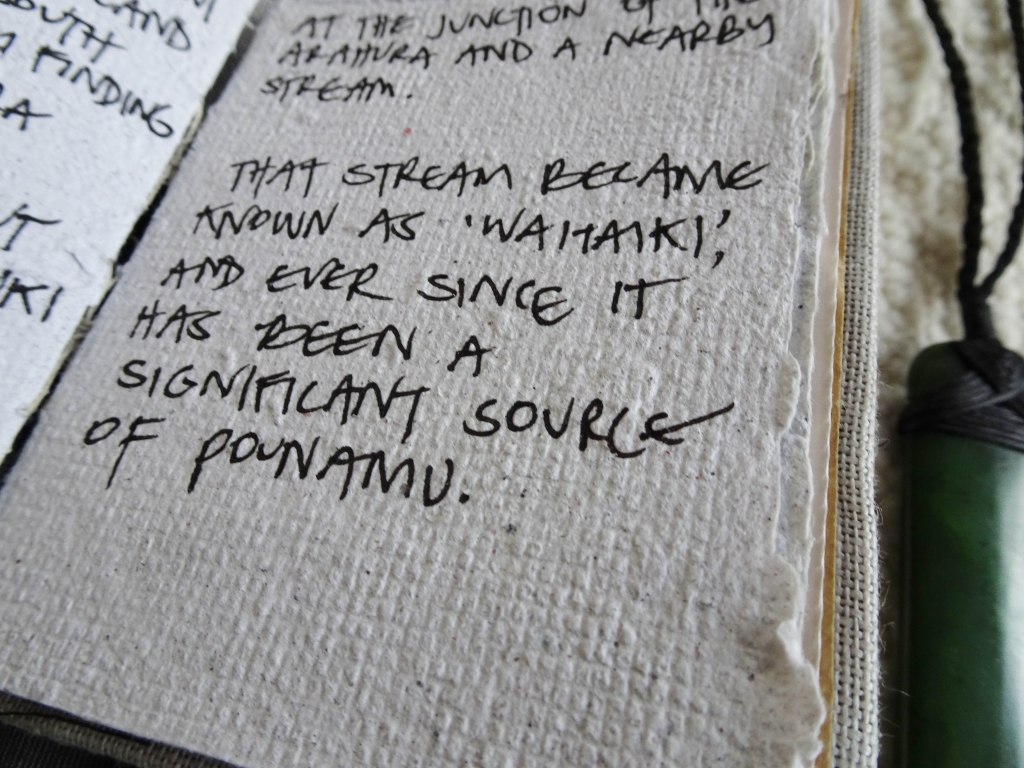 LAND
FINDING
AT THE JUNCTION OF THE
ARAHURA AND A NEARBY
STREAM.
THAT STREAM BECAME
KNOWN AS 'WAITAIKI',
AND EVER SINCE IT
HAS BEEN A
SIGNIFICANT SOURCE
OF POUNAMU.